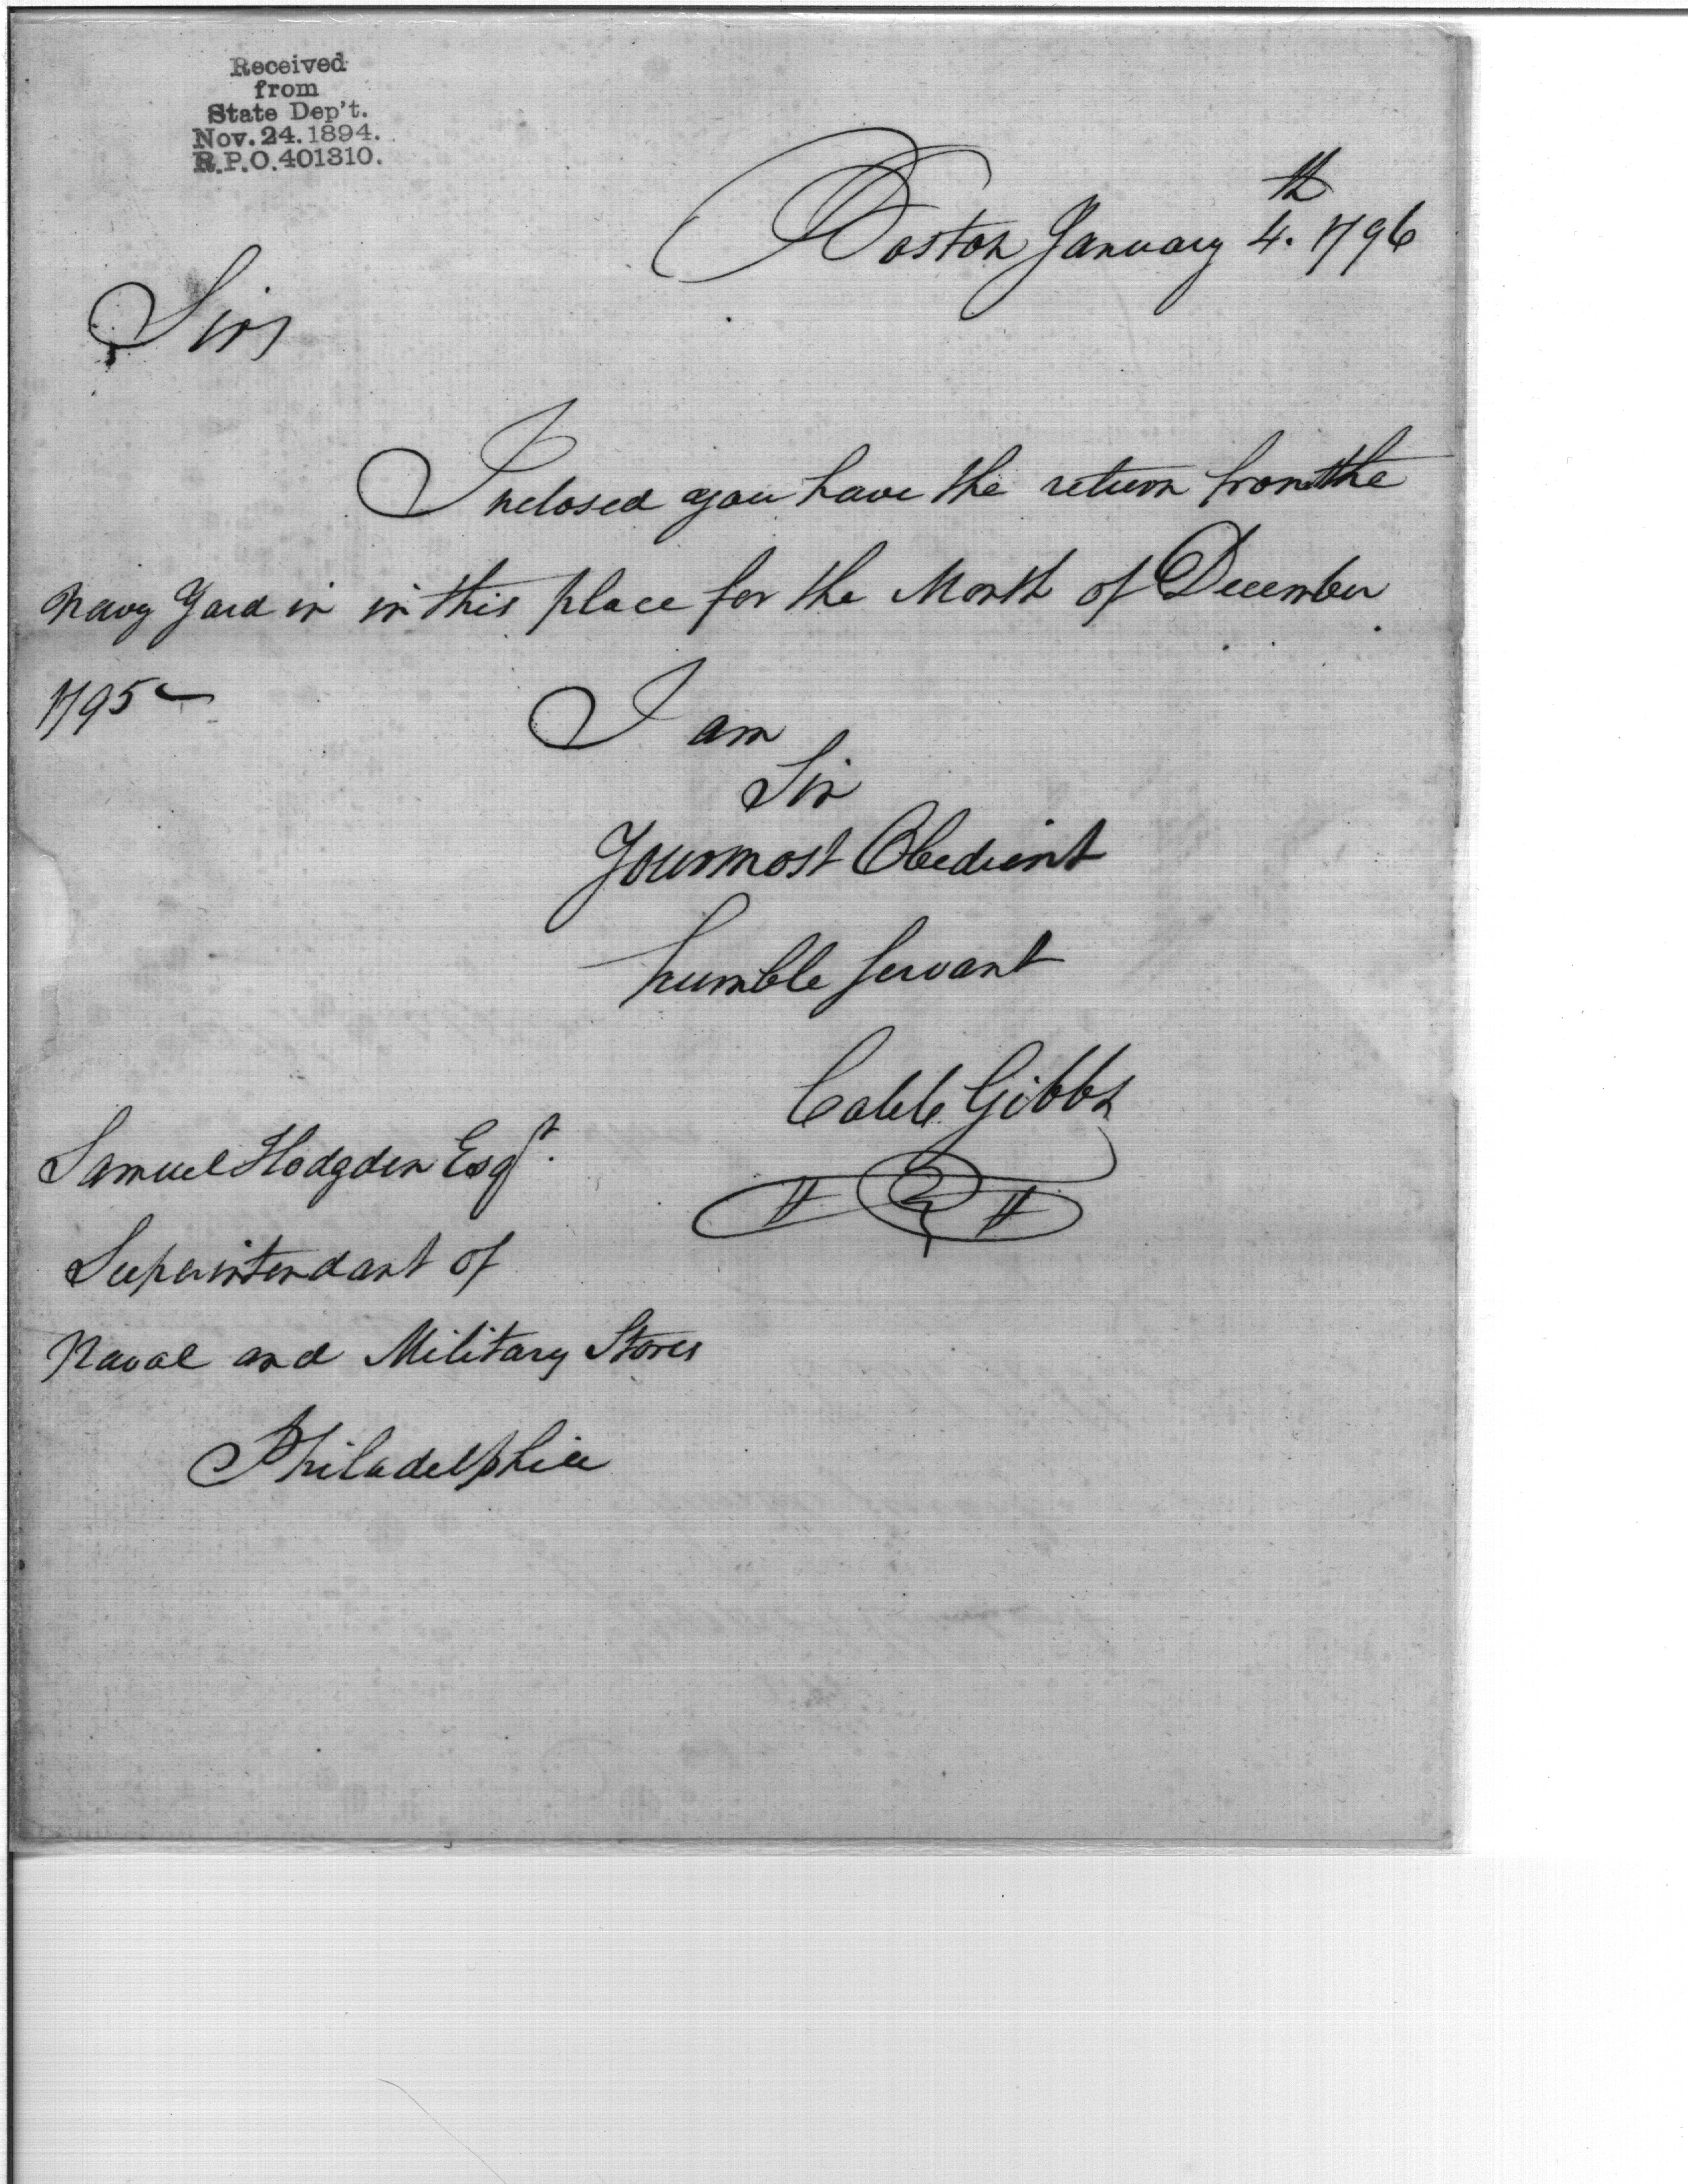 Received
from
State Dep't.
Nov. 24. 1894.
R.P.O. 401310.
Boston January 4.th 1796
Sir,
Inclosed you have the return from the
Navy Yard in in this place for the Month of December
1795
I am
Sir
Your most Obedient
humble Servant
Caleb Gibbs
Samuel Hodgden Esqr.
Superintendant of
Naval and Military Stores
Philadelphia